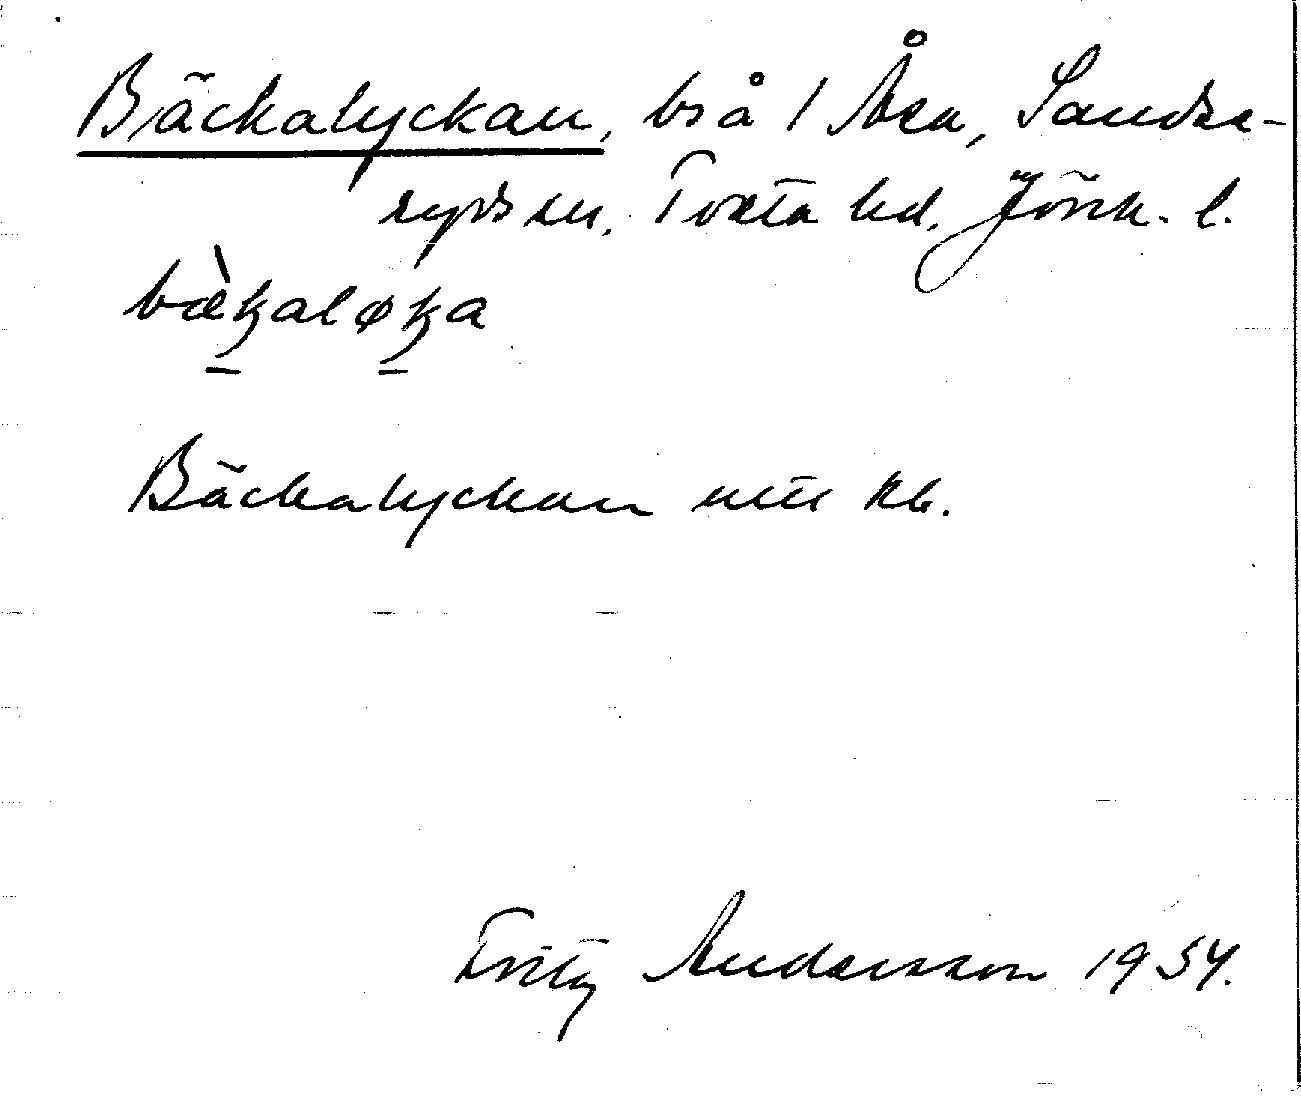 Bäckalyckan, bs å 1 Åsa, Sandse-
ryds sn, Tveta hd. Jönk. l.
bæ̀kaløka
Bäckalyckan utt kb.
Fritz Andersson 1954.